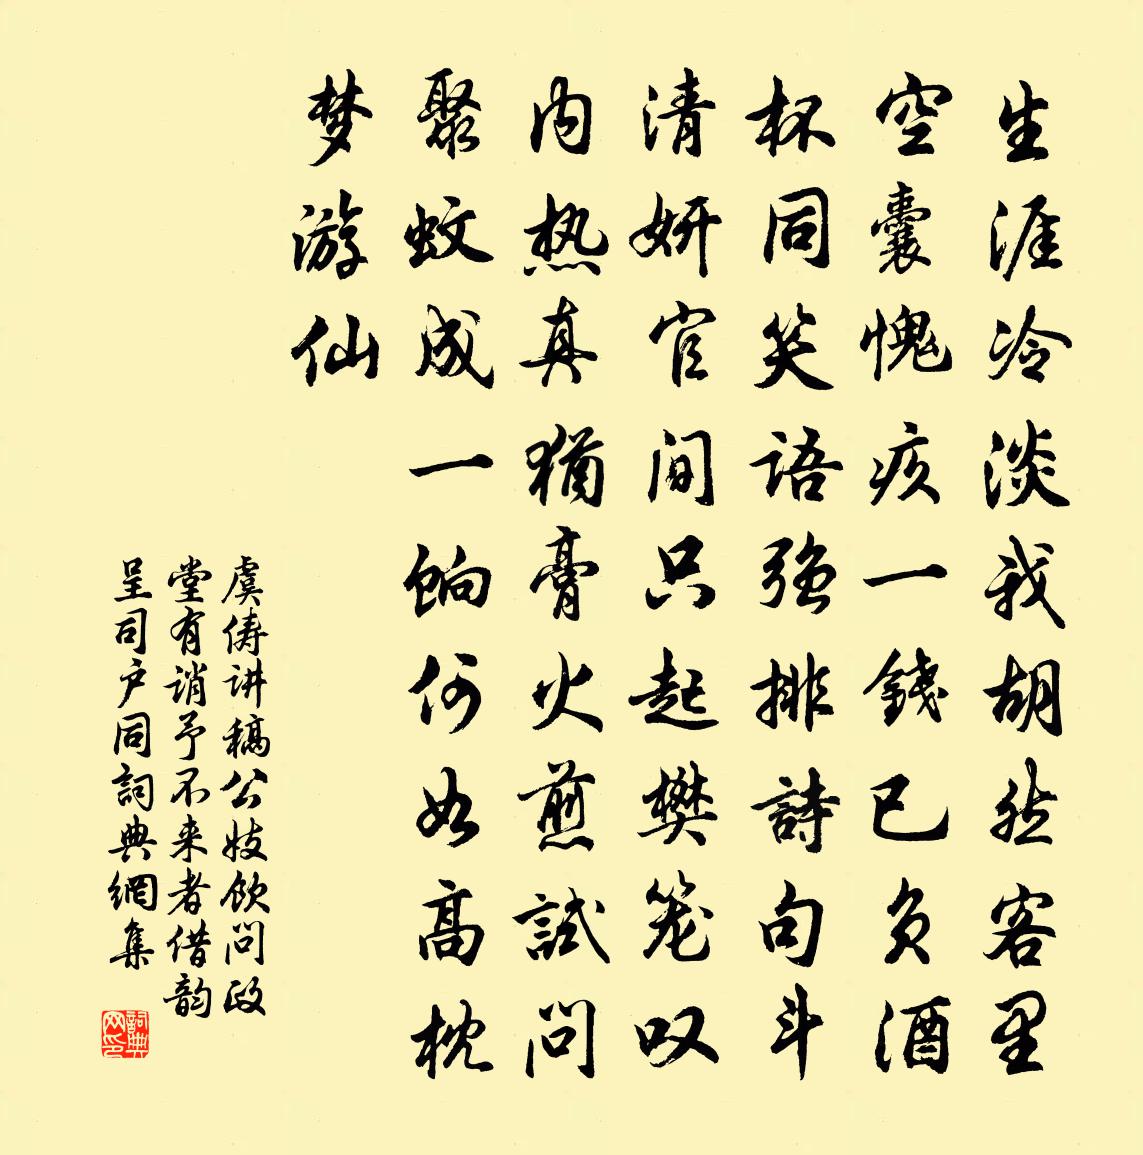 生涯冷淡我胡然客里
空囊愧疚一錢已负酒
杯同笑語强排詩句斗
清妍官间只起樊笼叹
内热真猶膏火煎試问
聚蚊成一餉何如高枕
梦游仙
虞俦讲稿公妓饮问政
堂有诮予不来者借韵
呈司户同詞典網集
詞典网印